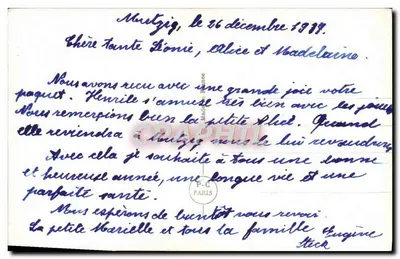 Mutzig, le 26 décembre 1919.
Chère tante Léonie, Alice et Madelaine.
Nous avons reçu avec une grande joie votre
paquet. s'amuse très bien avec les
Nous remerçions bien la petite Alice. Quand
elle reviendra à Mutzig nous le lui revaudrons
Avec cela je souhaite à tous une bonne
et heureuse année, une longue vie et une
parfaite santé.
P-C
PARIS
Nous espérons de bientôt vous revoir.
La petite Marielle et tous la famille Eugène